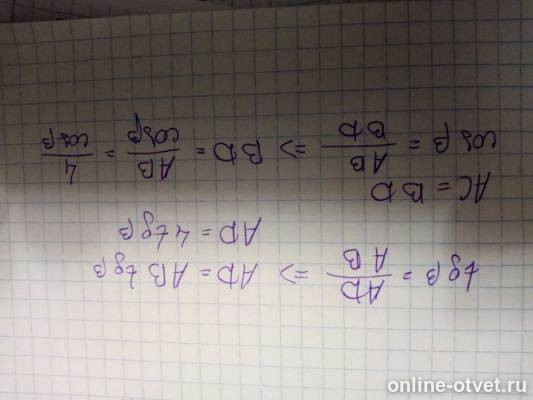 tg β = AD/AB => AD = AB tg β
AD = 4 tg β
AC = BD
cos β = AB/BD => BD = AB/cos β = 4/cos β
online-otvet.ru